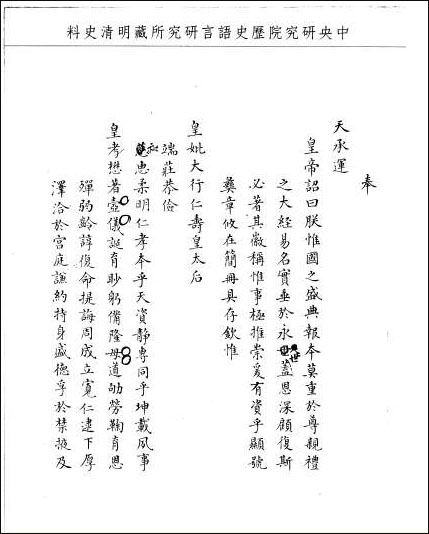 中央研究院歷史語言研究所藏明清史料
奉
天承運
皇帝詔曰朕惟國之盛典報本莫重於尊親禮
之大經易名實垂於永世蓋恩深顧復斯
必著其徽稱惟事極推崇爰有資乎顯號
彝章攸在簡冊具存欽惟
皇妣大行仁壽皇太后
端莊恭儉
和惠柔明仁孝本乎天資靜專同乎坤載夙事
皇考懋著壼儀誕育眇躬備隆母道劬勞鞠育恩
殫弱齡諄復命提誨周成立寬仁逮下厚
澤洽於宮庭謙約持身盛德孚於禁掖及